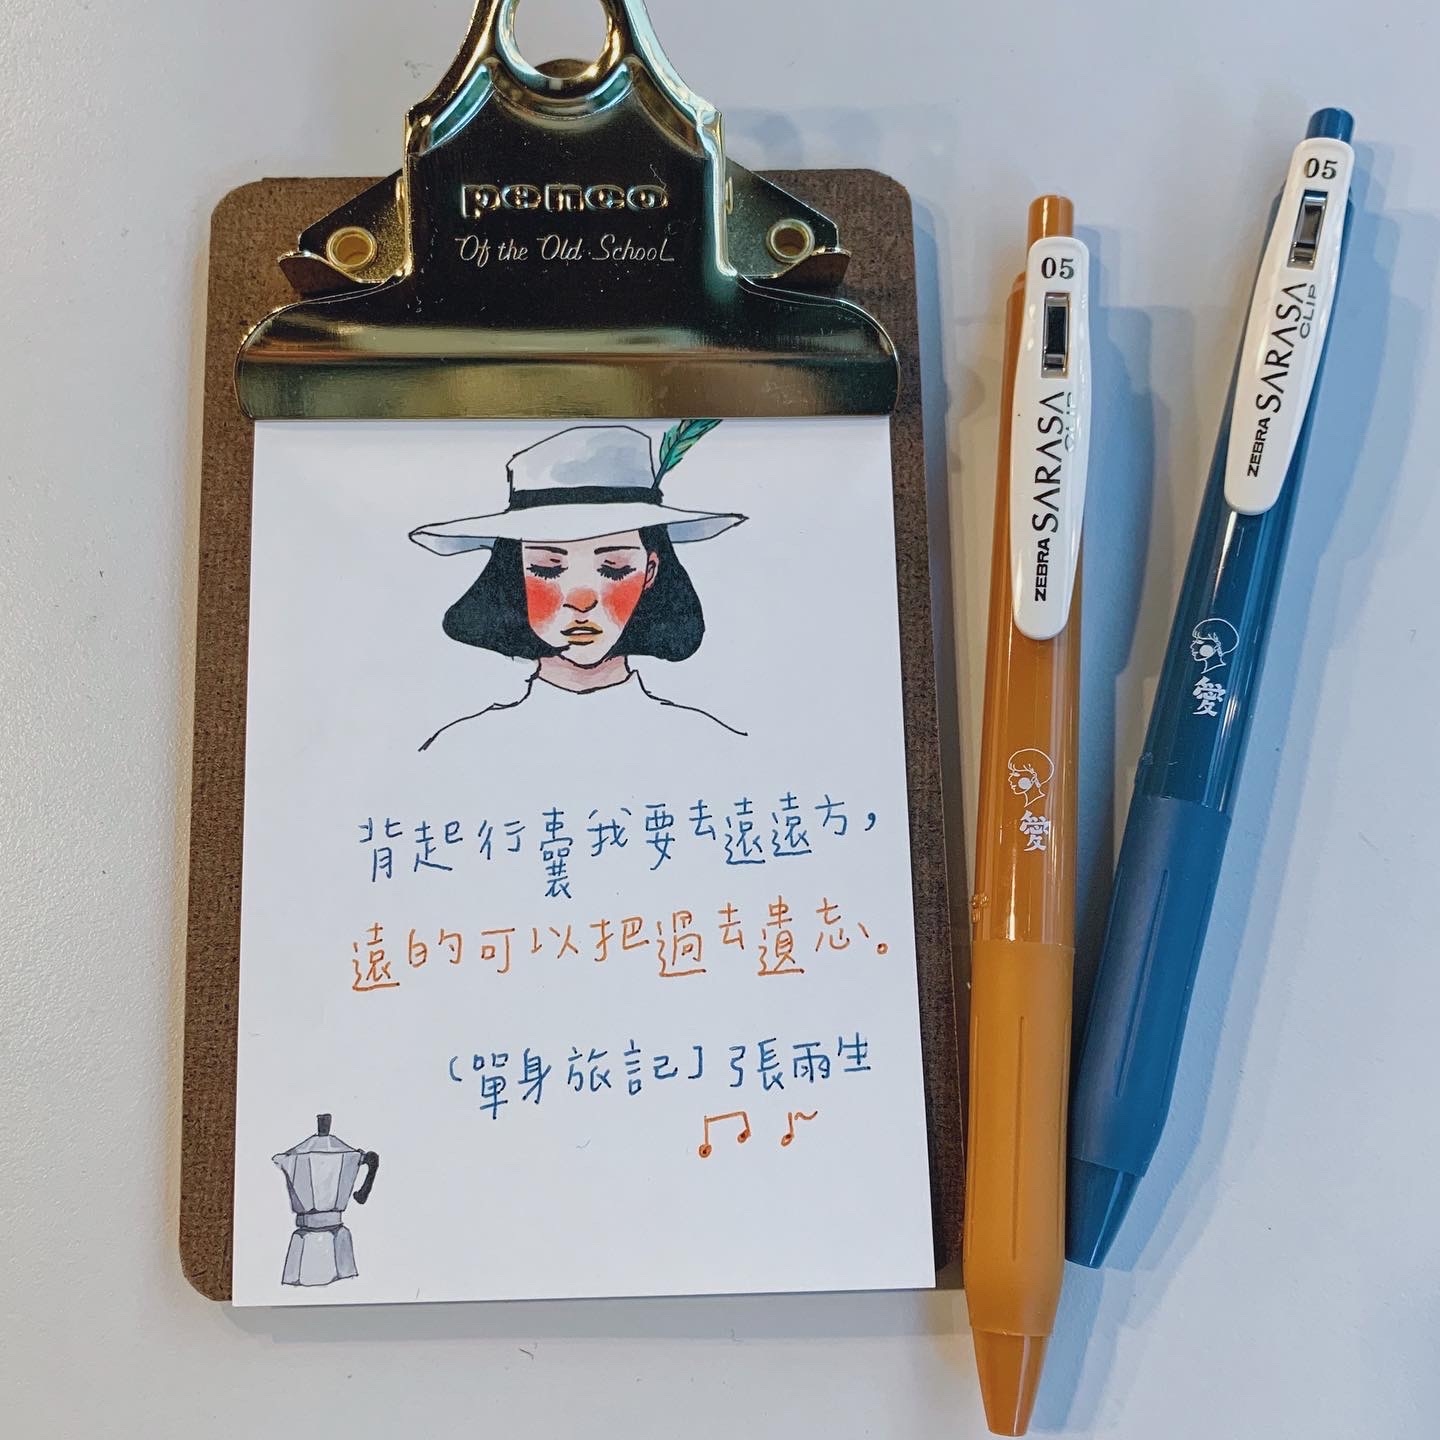 penco
Of the Old School
背起行囊我要去遠遠方，
遠的可以把過去遺忘。
〔單身旅記〕張雨生
05
ZEBRA SARASA CLIP
愛
05
ZEBRA SARASA CLIP
愛